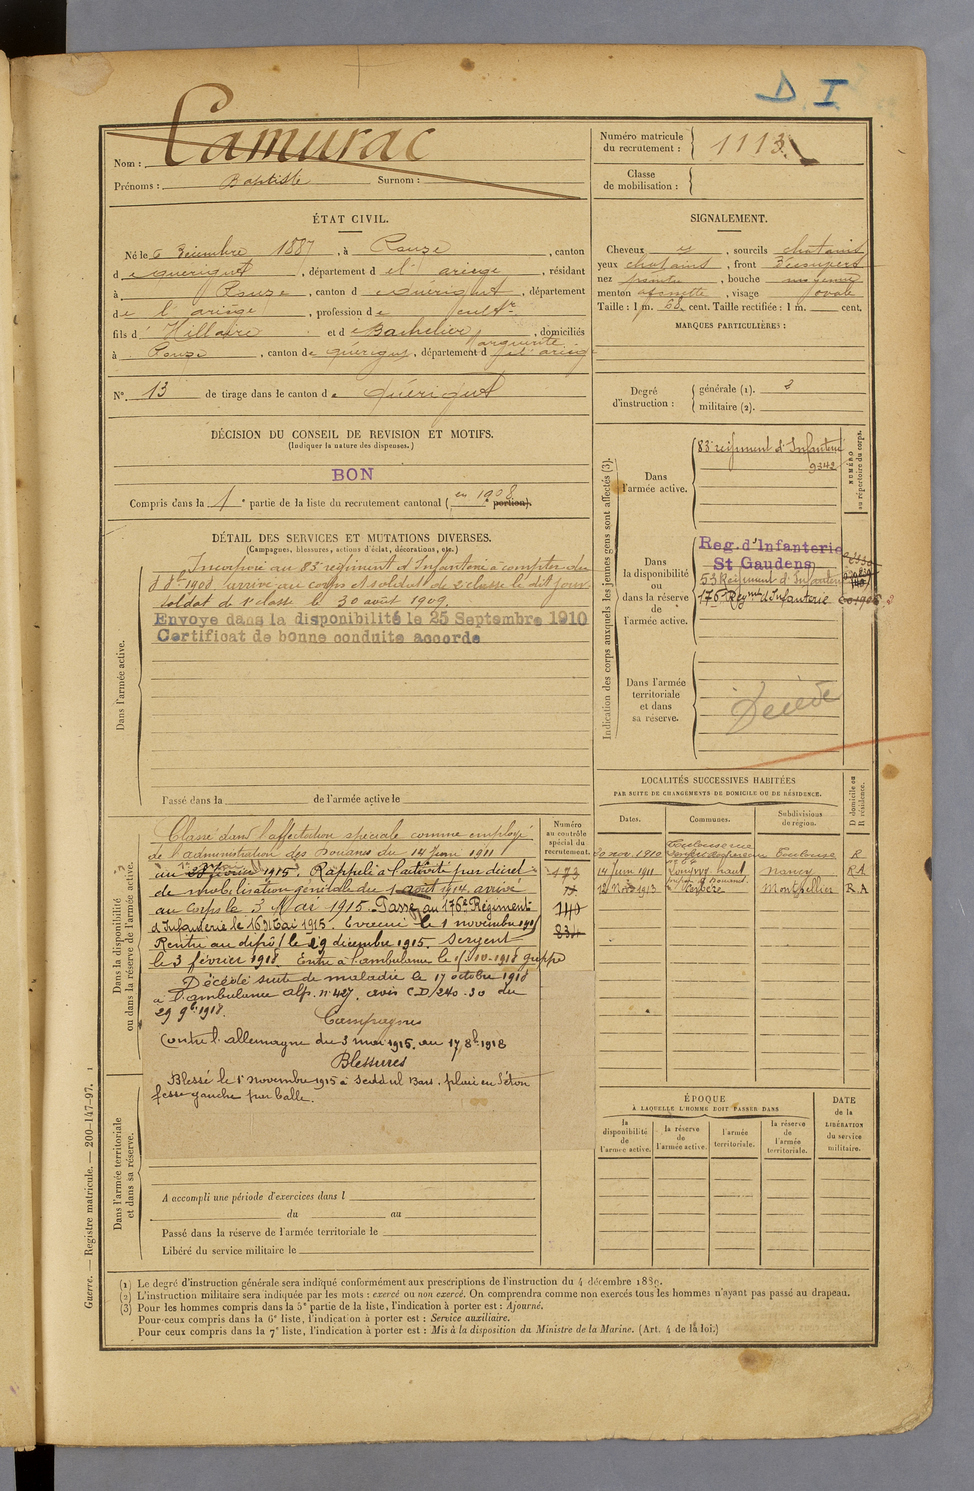 D. I.
Nom : Camurac
Prénoms : Baptiste Surnom :
Numéro matricule du recrutement : 1113
Classe de mobilisation :
ÉTAT CIVIL.
Né le 6 Décembre 1887, à Rouze, canton
d e Quérigut, département d e l'ariège, résidant
à Rouze, canton d e Quérigut, département
d e l'ariège, profession d e cultr
fils d' Hillaire et d e Bachelier Marguerite, domiciliés
à Rouze, canton d e quérigut, département d e l'ariège
N° 13 de tirage dans le canton d e Quérigut
SIGNALEMENT.
Cheveux, sourcils chatains
yeux chatains, front Découvert
nez, bouche moyenne
menton, visage ovale
Taille : 1 m. 68 cent. Taille rectifiée : 1 m. cent.
MARQUES PARTICULIÈRES :
Degré d'instruction : générale (1). 3
militaire (2).
DÉCISION DU CONSEIL DE REVISION ET MOTIFS.
(Indiquer la nature des dispenses.)
BON
Compris dans la 1e partie de la liste du recrutement cantonal ( en 1908 portion).
DÉTAIL DES SERVICES ET MUTATIONS DIVERSES.
(Campagnes, blessures, actions d'éclat, décorations, etc.)
Dans l'armée active.
Incorporé au 83e régiment d'Infanterie à compter du
8 8bre 1908, arrivé au corps et soldat de 2e classe le dit jour
Soldat de 1e classe le 30 août 1909
Envoyé dans la disponibilité le 25 Septembre 1910
Certificat de bonne conduite accordé
Passé dans la de l'armée active le
Indication des corps auxquels les jeunes gens sont affectés (3).
NUMÉRO au répertoire du corps.
Dans l'armée active.
83e régiment d'Infanterie
9342
Dans la disponibilité ou dans la réserve de l'armée active.
Reg. d'Infanterie
St Gaudens
53 Régiment d'Infanterie
176e Régmt d'Infanterie
Dans l'armée territoriale et dans sa réserve.
Décédé
Dans la disponibilité ou dans la réserve de l'armée active.
Classé dans l'affectation spéciale comme employé
de l'administration des Douanes du 14 Juin 1911
au 1915. Rappelé à l'activité par décret
de mobilisation générale du 1 août 1914, arrivé
au corps le 3 Mai 1915. Passé au 176e Régiment
d'Infanterie le 16 Mai 1915. Evacué le 1 novembre 1915
Rentré au dépôt le 29 décembre 1915. Sergent
le 3 février 1918. Entré à l'ambulance le 15-10-1918 grippe
Décédé suite de maladie le 17 octobre 1918
à l'ambulance alp. n° 427. avis CD/240-30 du
29 9bre 1918.
Campagnes
Contre l'allemagne du 3 mai 1915 au 17 8bre 1918
Blessures
Blessé le 1e novembre 1915 à Seddul Bars. plaie en Séton
fesse gauche par balle.
Numéro au contrôle spécial du recrutement.
173
11
140
834
LOCALITÉS SUCCESSIVES HABITÉES
PAR SUITE DE CHANGEMENTS DE DOMICILE OU DE RÉSIDENCE.
Dates. Communes. Subdivisions de région. D domicile ou R résidence.
30 nov. 1910 Toulouse rue Toulouse R
14 Juin 1911 Longwy haut Nancy R.A
12 Nov 1913 Cerbère Montpellier R.A
Dans l'armée territoriale et dans sa réserve.
A accompli une période d'exercices dans l
du au
Passé dans la réserve de l'armée territoriale le
Libéré du service militaire le
ÉPOQUE
À LAQUELLE L'HOMME DOIT PASSER DANS
la disponibilité de l'armée active.
la réserve de l'armée active.
l'armée territoriale.
la réserve de l'armée territoriale.
DATE de la LIBÉRATION du service militaire.
(1) Le degré d'instruction générale sera indiqué conformément aux prescriptions de l'instruction du 4 décembre 1889.
(2) L'instruction militaire sera indiquée par les mots : exercé ou non exercé. On comprendra comme non exercés tous les hommes n'ayant pas passé au drapeau.
(3) Pour les hommes compris dans la 5e partie de la liste, l'indication à porter est : Ajourné.
Pour ceux compris dans la 6e liste, l'indication à porter est : Service auxiliaire.
Pour ceux compris dans la 7e liste, l'indication à porter est : Mis à la disposition du Ministre de la Marine. (Art. 4 de la loi.)
Guerre. — Registre matricule. — 200-147-97. 1